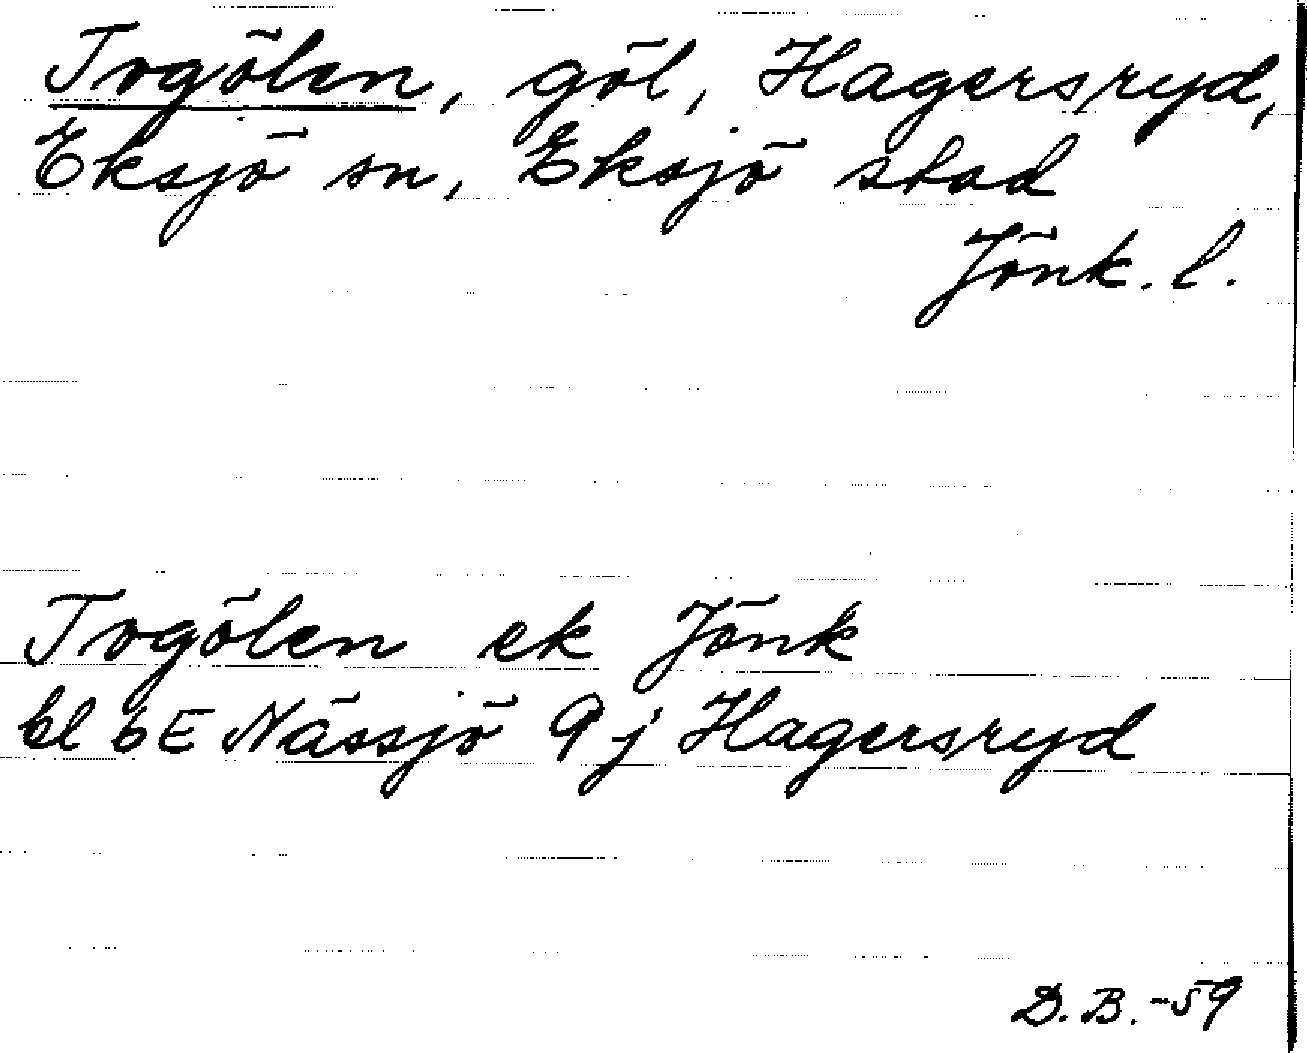 Tvgölen, göl, Hagersryd,
Eksjö sn, Eksjö stad
Jönk. l.
Tvgölen ek Jönk
bl 6E Nässjö 9j Hagersryd
D.B. -59